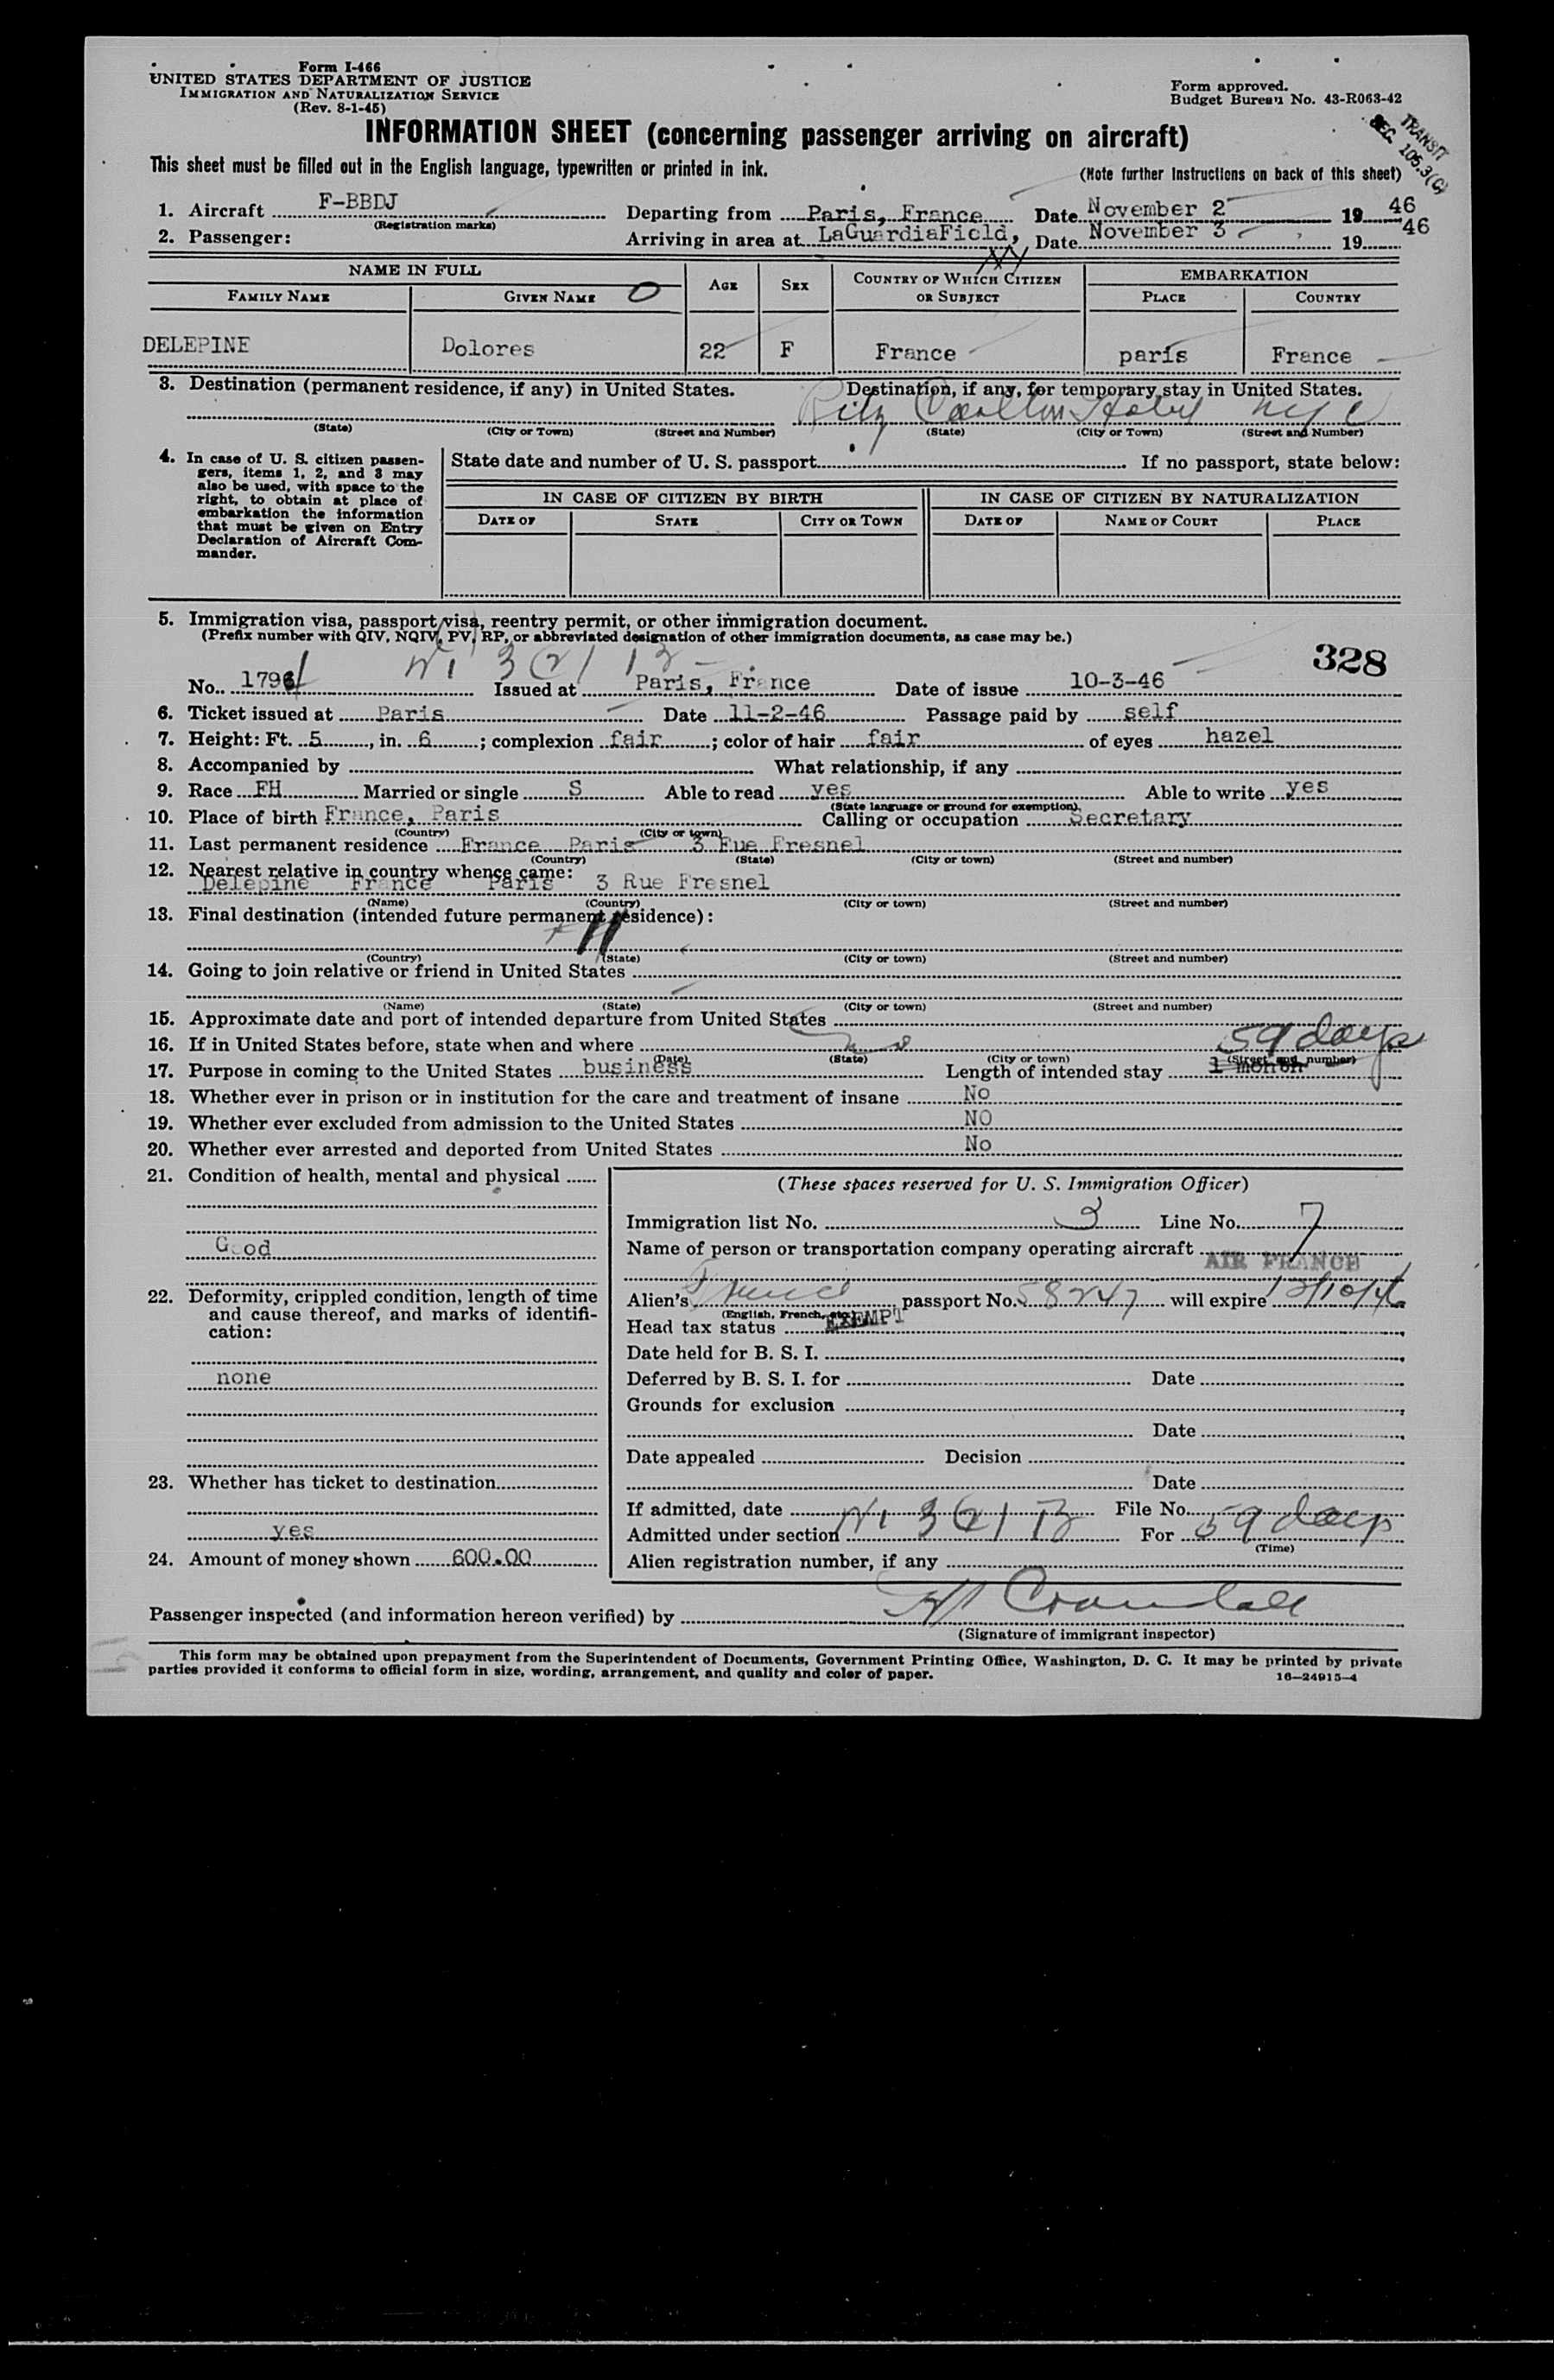 Form I-466
UNITED STATES DEPARTMENT OF JUSTICE
IMMIGRATION AND NATURALIZATION SERVICE
(Rev. 8-1-45)
Form approved.
Budget Bureau No. 43-R063-42
TRANSIT
SEC. 105.3(C)
INFORMATION SHEET (concerning passenger arriving on aircraft)
This sheet must be filled out in the English language, typewritten or printed in ink. (Note further instructions on back of this sheet)
1. Aircraft F-BBDJ Departing from Paris, France Date November 2 1946
(Registration marks)
2. Passenger: Arriving in area at LaGuardiaField, NY Date November 3 1946
NAME IN FULL AGE SEX COUNTRY OF WHICH CITIZEN OR SUBJECT EMBARKATION
FAMILY NAME GIVEN NAME PLACE COUNTRY
DELEPINE Dolores 22 F France paris France
3. Destination (permanent residence, if any) in United States. Destination, if any, for temporary stay in United States.
Ritz Carlton Hotel NYC
(State) (City or Town) (Street and Number) (State) (City or Town) (Street and Number)
4. In case of U. S. citizen passen-
gers, items 1, 2, and 3 may
also be used, with space to the
right, to obtain at place of
embarkation the information
that must be given on Entry
Declaration of Aircraft Com-
mander.
State date and number of U. S. passport If no passport, state below:
IN CASE OF CITIZEN BY BIRTH IN CASE OF CITIZEN BY NATURALIZATION
DATE OF STATE CITY OR TOWN DATE OF NAME OF COURT PLACE
5. Immigration visa, passport visa, reentry permit, or other immigration document.
(Prefix number with QIV, NQIV, PV, RP, or abbreviated designation of other immigration documents, as case may be.)
328
No. 1796 Issued at Paris, France Date of issue 10-3-46
6. Ticket issued at Paris Date 11-2-46 Passage paid by self
7. Height: Ft. 5, in. 6; complexion fair; color of hair fair of eyes hazel
8. Accompanied by What relationship, if any
9. Race FH Married or single S Able to read yes Able to write yes
(State language or ground for exemption)
10. Place of birth France, Paris Calling or occupation Secretary
(Country) (City or town)
11. Last permanent residence France Paris 3 Rue Fresnel
(Country) (State) (City or town) (Street and number)
12. Nearest relative in country whence came:
Delepine France Paris 3 Rue Fresnel
(Name) (Country) (City or town) (Street and number)
13. Final destination (intended future permanent residence):
(Country) (State) (City or town) (Street and number)
14. Going to join relative or friend in United States
(Name) (State) (City or town) (Street and number)
15. Approximate date and port of intended departure from United States
16. If in United States before, state when and where no
(Date) (State) (City or town) (Street and number)
59 days
17. Purpose in coming to the United States business Length of intended stay 1 month
18. Whether ever in prison or in institution for the care and treatment of insane No
19. Whether ever excluded from admission to the United States NO
20. Whether ever arrested and deported from United States No
21. Condition of health, mental and physical
Good
22. Deformity, crippled condition, length of time
and cause thereof, and marks of identifi-
cation:
none
23. Whether has ticket to destination
yes
24. Amount of money shown 600.00
(These spaces reserved for U. S. Immigration Officer)
Immigration list No. 3 Line No. 7
Name of person or transportation company operating aircraft
AIR FRANCE
Alien's French passport No. 58247 will expire 12/10/46
(English, French, etc.)
Head tax status EXEMPT
Date held for B. S. I.
Deferred by B. S. I. for Date
Grounds for exclusion
Date
Date appealed Decision
Date
If admitted, date File No.
Admitted under section For 59 days
(Time)
Alien registration number, if any
Passenger inspected (and information hereon verified) by Crandall
(Signature of immigrant inspector)
This form may be obtained upon prepayment from the Superintendent of Documents, Government Printing Office, Washington, D. C. It may be printed by private
parties provided it conforms to official form in size, wording, arrangement, and quality and color of paper.
16—24915-4